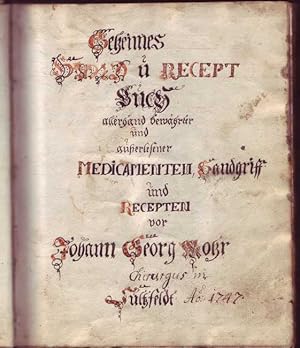 Geheimes
û RECEPT
Buch
allerhand bewährter
und
außerlesener
MEDICAMENTEN, Handgriff
und
RECEPTEN
vor
Johann Georg Mohr
Chirurgus in
Sultzfeldt Ao: 1747.